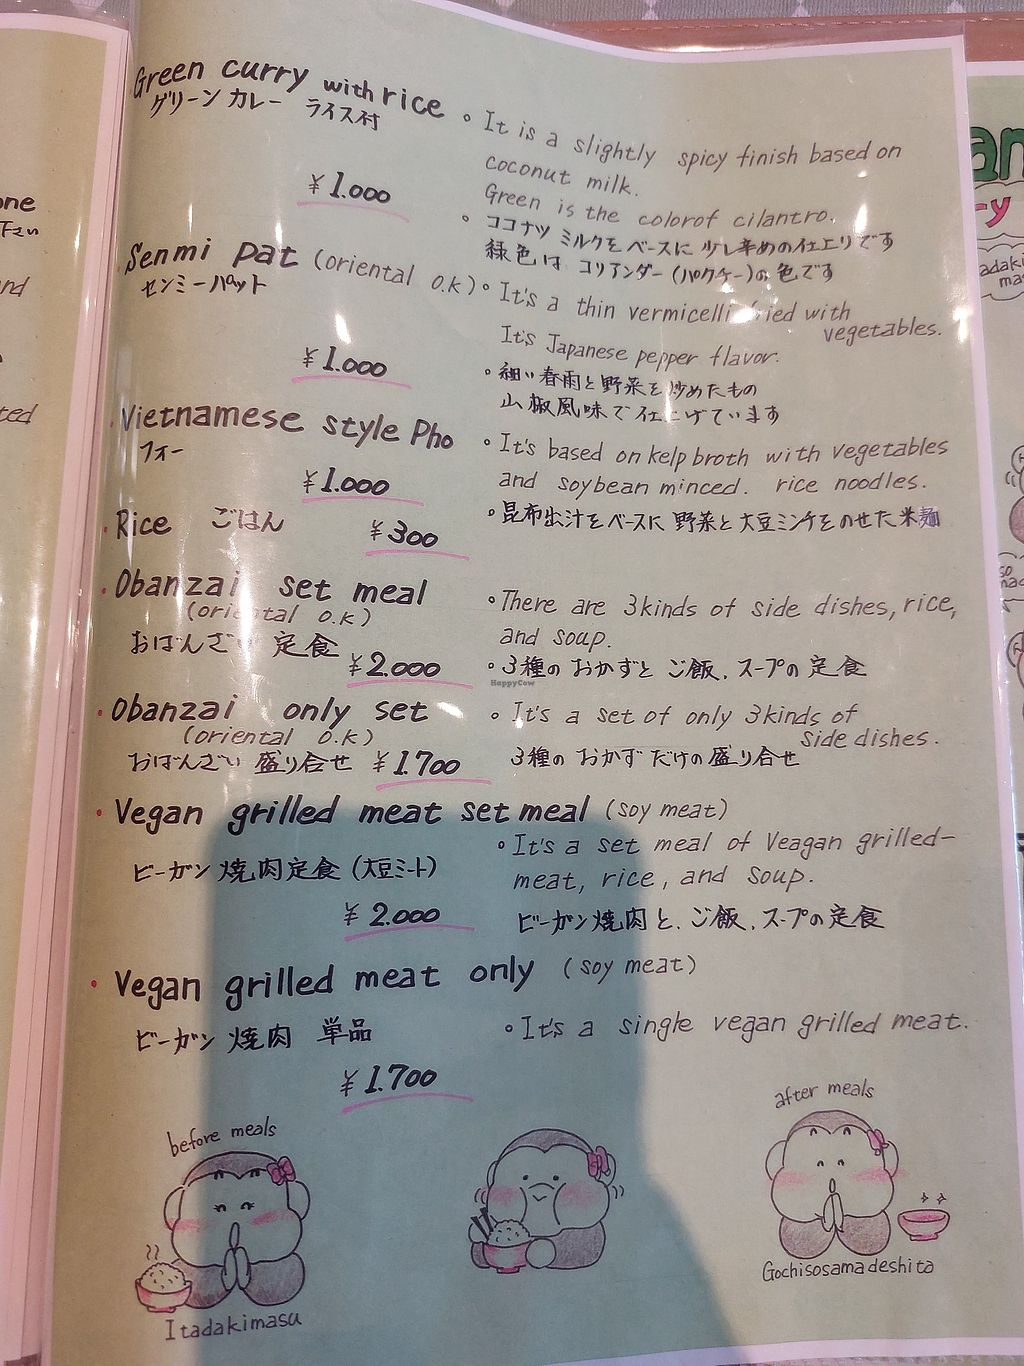 Green curry with rice
グリーン カレー ライス付
¥1.000
• It is a slightly spicy finish based on
coconut milk.
Green is the colorof cilantro.
• ココナツ ミルクをベースに 少し辛めの仕上りです
緑色は コリアンダー(パクチー)の色です
Senmi pat (oriental O.K)
センミーパット
¥1.000
• It's a thin vermicelli fried with
vegetables.
It's Japanese pepper flavor.
• 細い春雨と野菜を炒めたもの
山椒風味で仕上げています
Vietnamese style Pho
フォー
¥1.000
• It's based on kelp broth with vegetables
and soybean minced. rice noodles.
• 昆布出汁をベースに 野菜と大豆ミンチをのせた米麺
• Rice ごはん ¥300
• Obanzai set meal
(oriental O.K)
おばんざい 定食
¥2.000
• There are 3kinds of side dishes, rice,
and soup.
• 3種の おかずと ご飯、スープの定食
• Obanzai only set
(oriental O.K)
おばんざい 盛り合せ ¥1.700
• It's a set of only 3kinds of
side dishes.
3種の おかずだけの盛り合せ
• Vegan grilled meat set meal (soy meat)
ビーガン 焼肉定食 (大豆ミート)
¥2.000
• It's a set meal of Veagan grilled-
meat, rice, and soup.
ビーガン焼肉と、ご飯、スープの定食
• Vegan grilled meat only (soy meat)
ビーガン 焼肉 単品
¥1.700
• It's a single vegan grilled meat.
before meals
Itadakimasu
after meals
Gochisosamadeshita
HappyCow
one
下さい
nd
ted
an